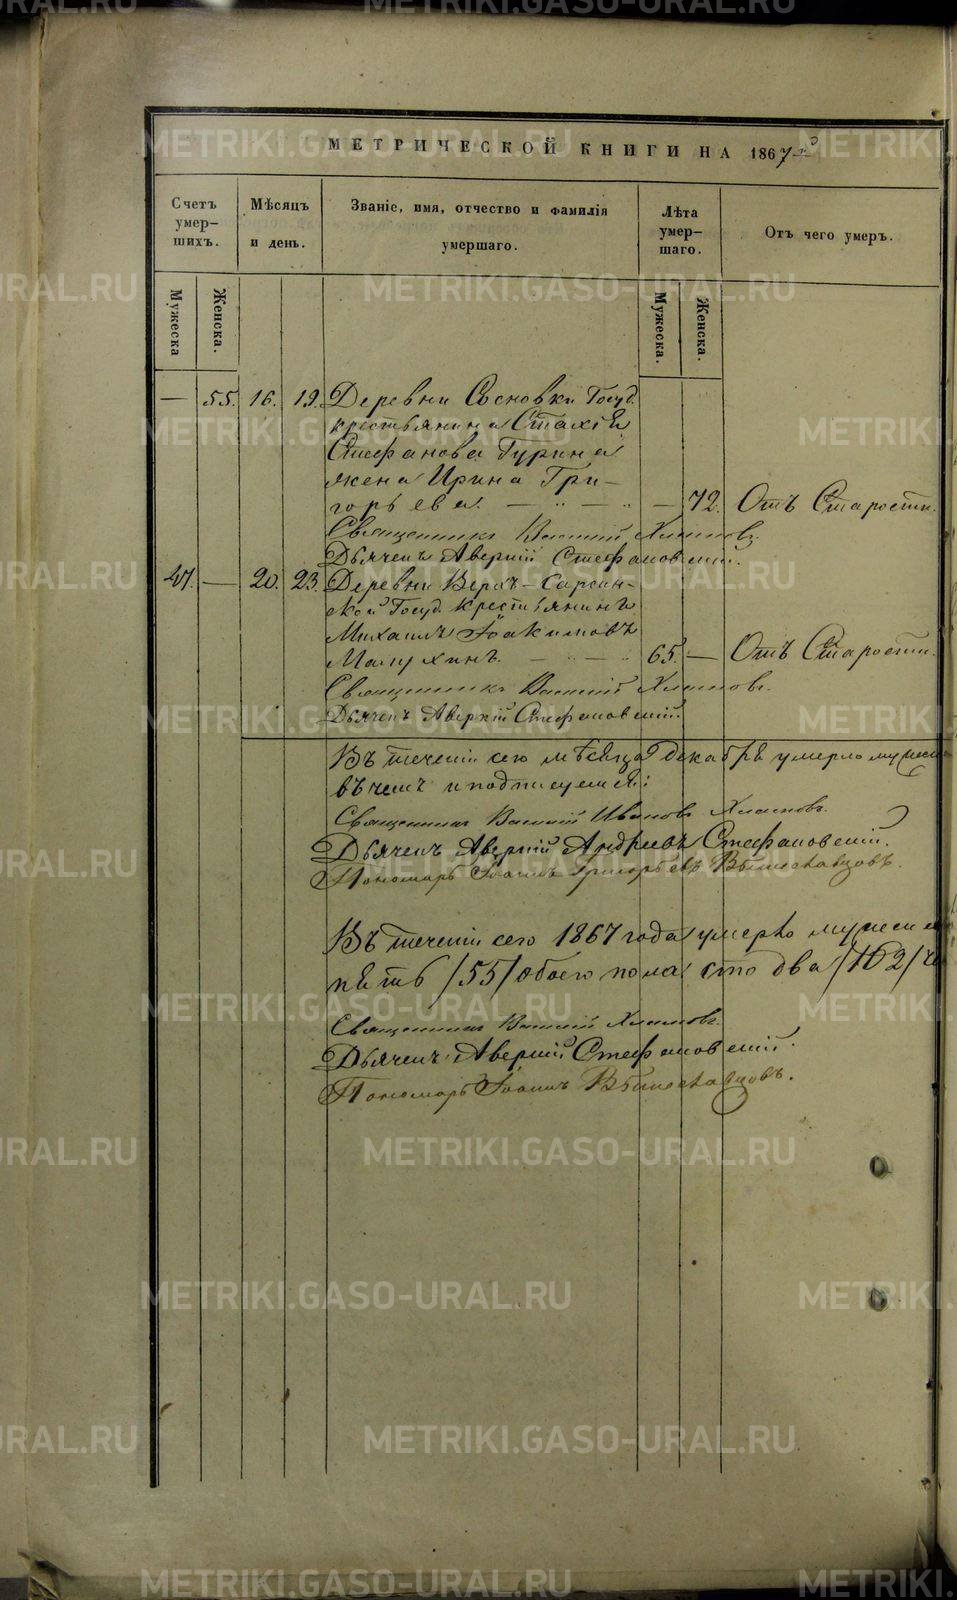 МЕТРИЧЕСКОЙ КНИГИ НА 1867й
Счетъ умер-шихъ.
Мѣсяцъ и день.
Званіе, имя, отчество и фамилія умершаго.
Лѣта умер-шаго.
Отъ чего умеръ.
Мужеска
Женска.
Мужеска.
Женска.
— 55. 16. 19. Деревни Сосновки Госуд.
крестьянина Стахія
Стефанова Гурина
жена Ирина Гри-
горьева. — 72. Отъ Старости.
Священникъ Василій Хлыновъ.
Дьячекъ Аверкій Стефановскій.
47. — 20. 23. Деревни Верхъ-Сарсин-
ской Госуд. крестьянинъ
Михаилъ Іоакимовъ
65. — Отъ Старости.
Священникъ Василій Хлыновъ.
Дьячекъ Аверкій Стефановскій.
Въ теченіи сего мѣсяца Декабря умерло мужеска
въ чемъ и подписуемся:
Священникъ Василій Ивановъ Хлыновъ.
Дьячекъ Аверкій Андреевъ Стефановскій.
Пономарь Іоаннъ Григорьевъ Вышеславцовъ.
Въ теченіи сего 1867 года умерло мужеска
пять /55/ обоего пола сто два /102/
Священникъ Василій Хлыновъ.
Дьячекъ Аверкій Стефановскій.
Пономарь Іоаннъ Вышеславцовъ.
METRIKI.GASO-URAL.RU